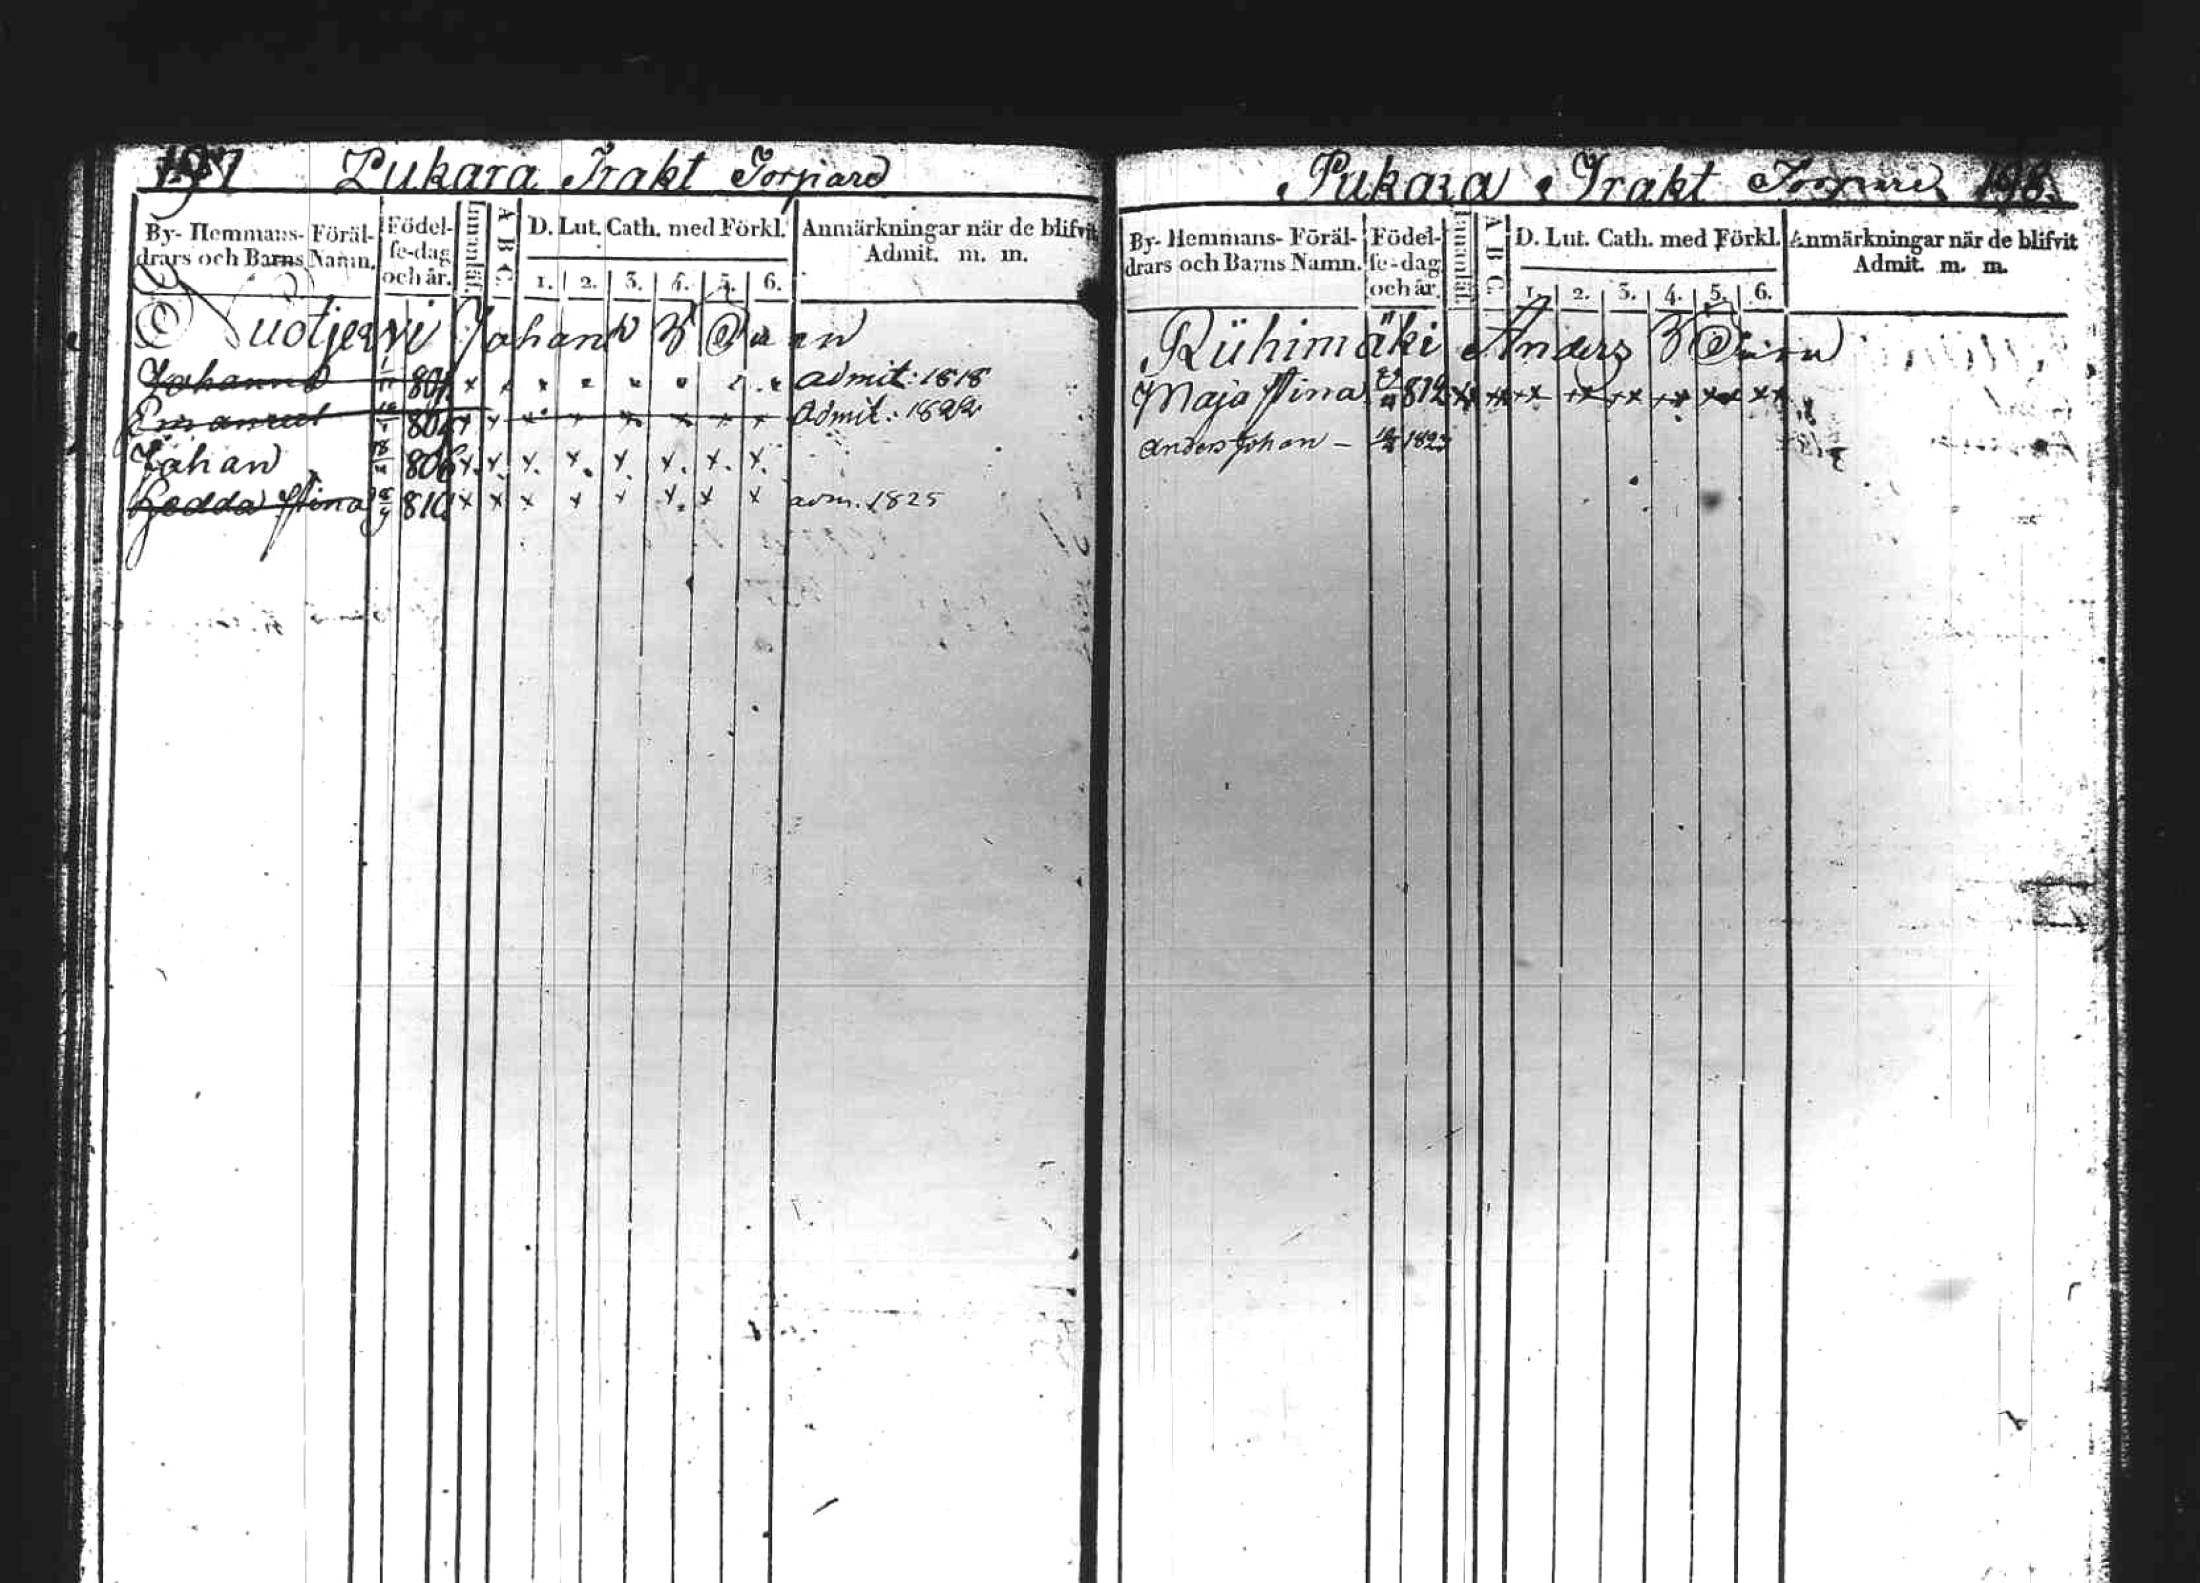 197 Pukara Trakt Torpare
By- Hemmans- Föräl-
drars och Barns Namn.
Födel-
se-dag
och år.
Innanläs.
A B C.
D. Lut. Cath. med Förkl.
1. 2. 3. 4. 5. 6.
Anmärkningar när de blifvit
Admit. m. m.
Nuotjervi Johans Barn
Johannes 801 admit: 1818
Emanuel 804 x x x x x x x x Admit: 1822
Johan 806 x. x. x. x. x. x. x. x.
Hedda Stina 810 x x x x x x x x adm. 1825
Pukara Trakt Torpare 198.
By- Hemmans- Föräl-
drars och Barns Namn.
Födel-
se-dag
och år.
Innanläs.
A B C.
D. Lut. Cath. med Förkl.
1. 2. 3. 4. 5. 6.
Anmärkningar när de blifvit
Admit. m. m.
Riihimäki Anders Barn
Maja Stina 812 xx xx xx xx xx xx xx xx
Anders Johan – 1823